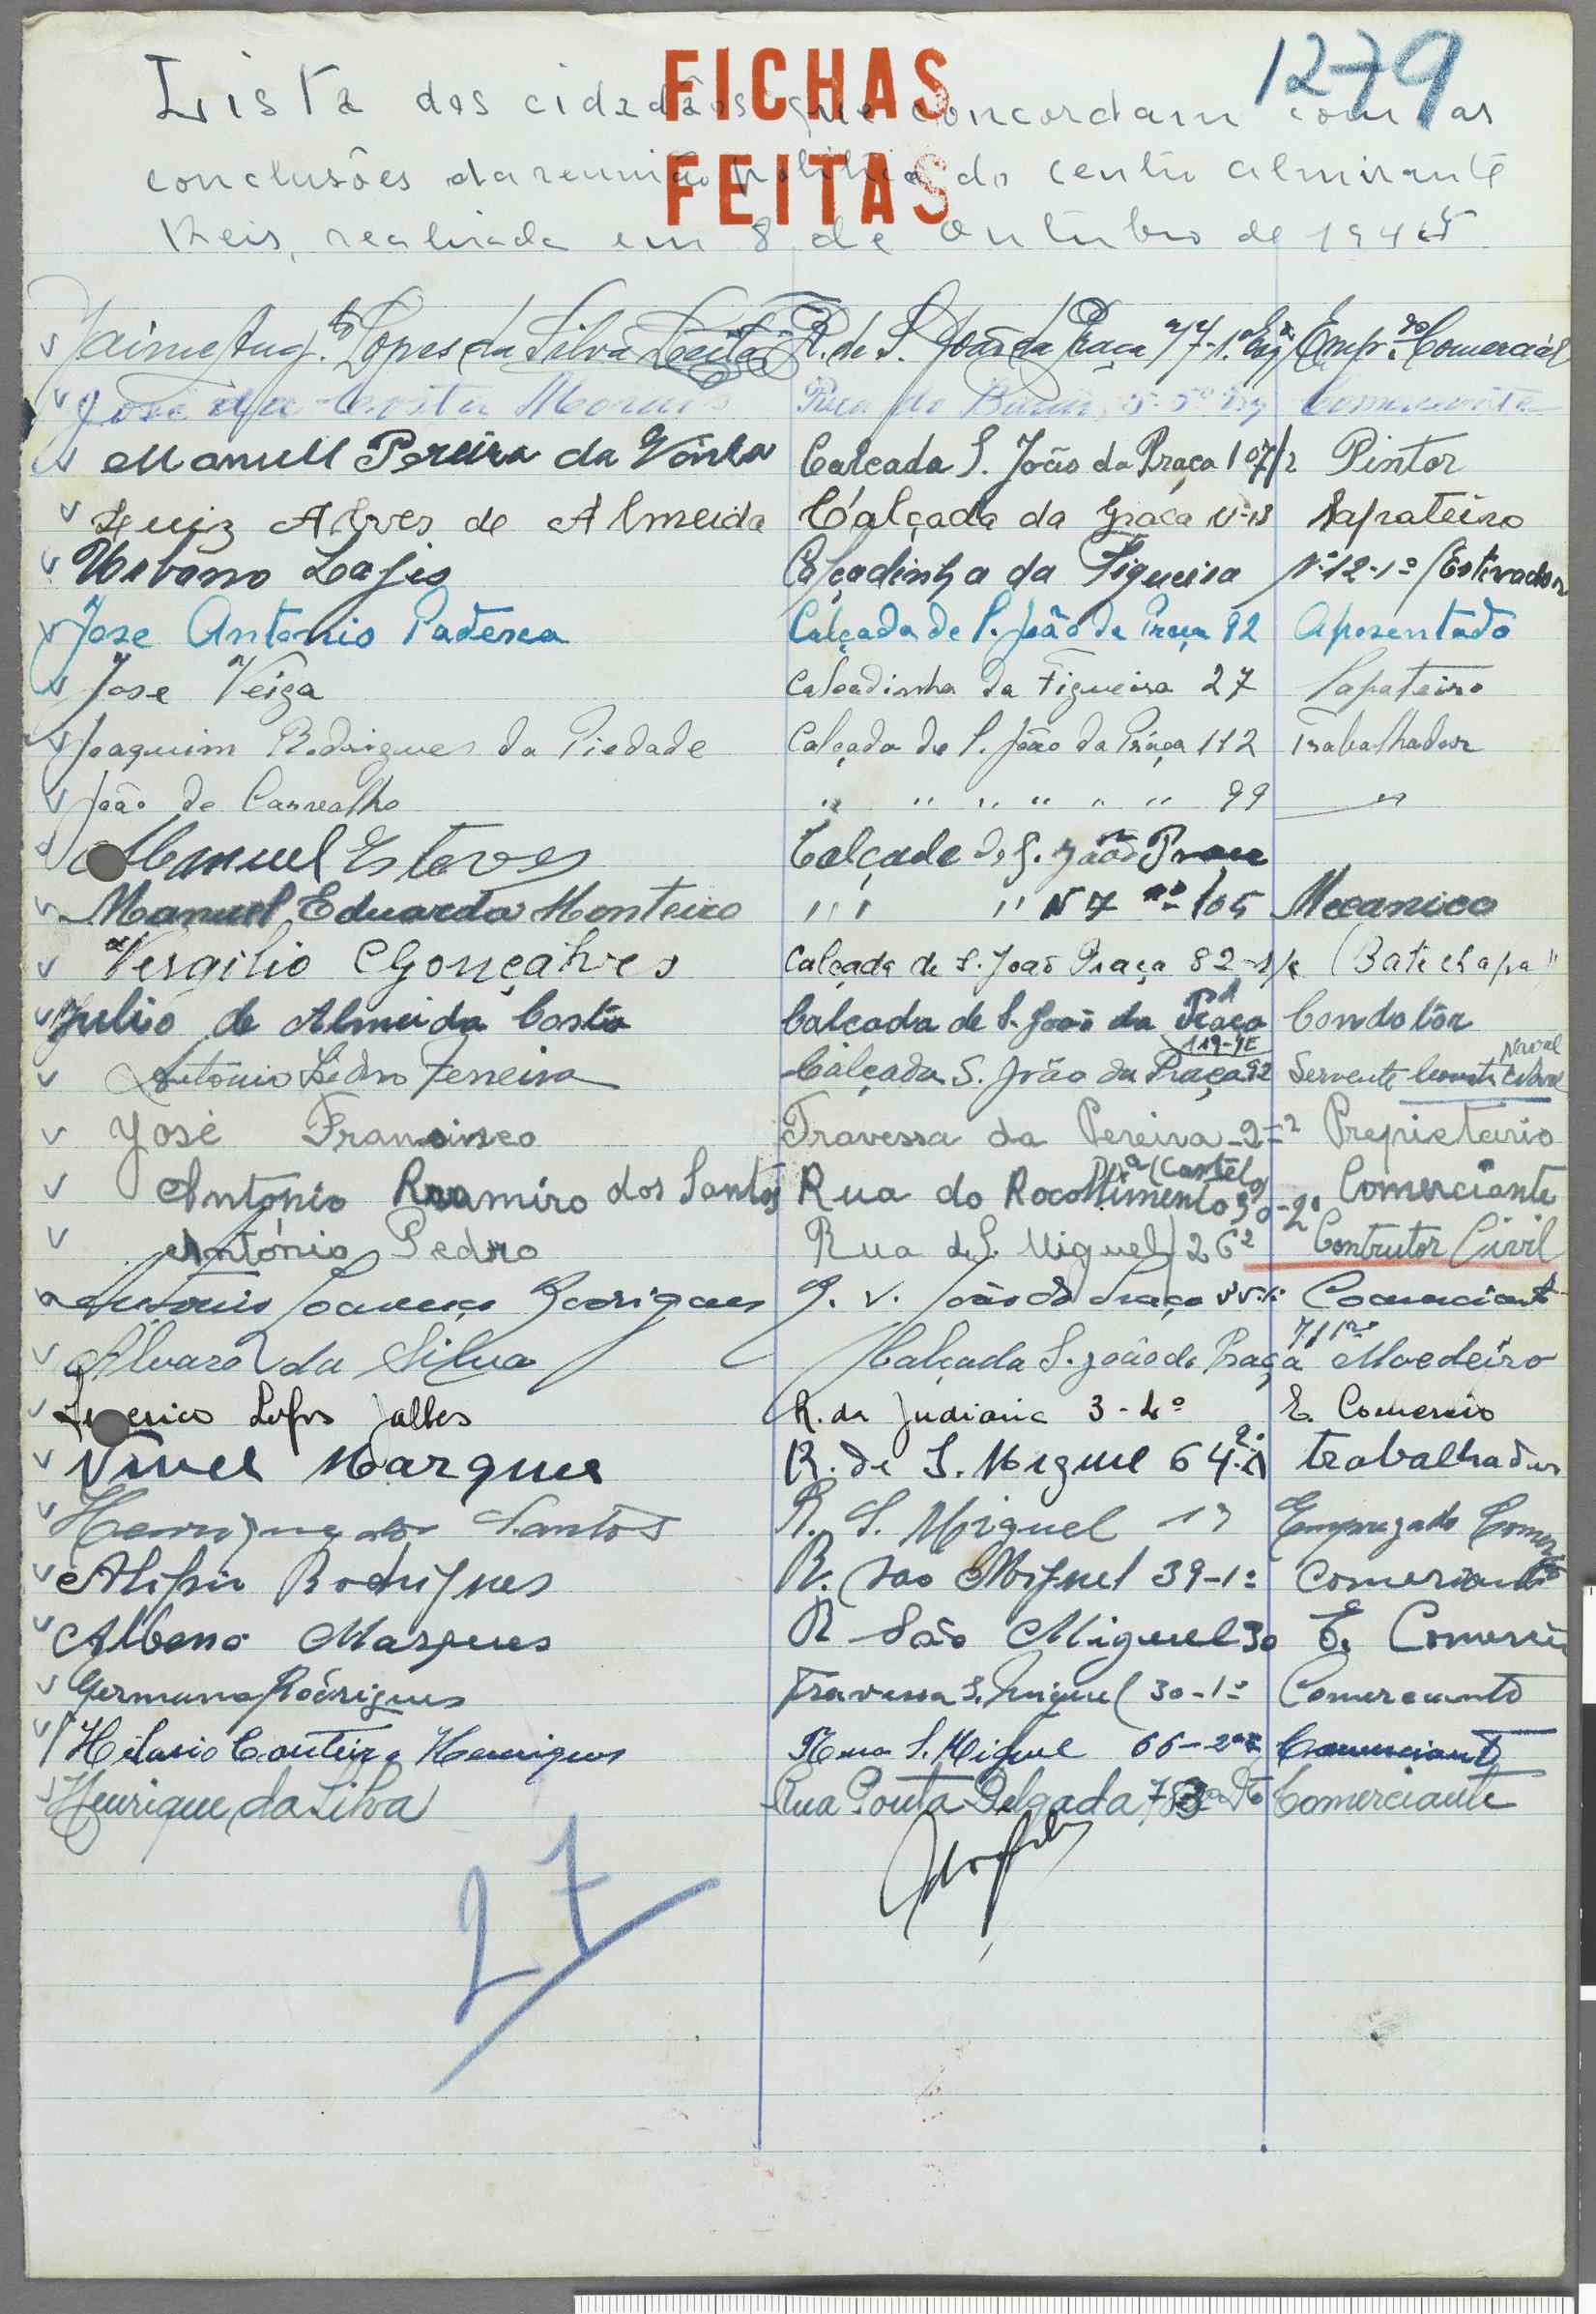 FICHAS
FEITAS
1279
Lista dos cidadãos que concordam com as
conclusões da reunião política do centro almirante
Reis, realizada em 8 de Outubro de 1945
Jaime Aug.to Lopes da Silva Leitão R. de S. João da Praça 77-1.º Esq. Emp.do Comercial
José da Costa Morais Comerciante
Manuel Pereira da Calçada S. João da Praça 107 Pintor
Luiz Alves de Almeida Calçada da Graça Nº 13 Sapateiro
Urbano Lajes Calçadinha da Figueira Nº 12-1º Estivador
Jose Antonio Calçada de S. João da Praça 92 Aposentado
Jose Veiga Calçadinha da Figueira 27 Sapateiro
Joaquim Rodrigues da Piedade Calçada de S. João da Praça 112 Trabalhador
João de Carvalho " " " " " " 99 "
Manuel Esteves Calçada de S. João Praça
Manuel Eduardo Monteiro " " " 105 Mecanico
Vergilio Gonçalves Calçada de S. João Praça 82 (Bate chapa"
Julio de Almeida Costa Calçada de S. João da Praça Condotôr
119-1E
António Pedro Ferreira Calçada S. João da Praça 92 Servente Naval
José Francisco Travessa da Pereira-2-2 Proprietario
António Ramiro dos Santos Rua do Rocolhimento (Castelo) 50-2º Comerciante
António Pedro Rua de S. Miguel 26 2 Contrutor Civil
António Rodrigues João da Praça Comerciante
Alvaro da Silva Calçada S. João da Praça Moedeiro
Lopes R. da Judiaria 3-4º E. Comercio
Marques R. de S. Miguel 64-2º trabalhador
Henrique dos Santos R. S. Miguel Empregado Comercio
Alipio Rodrigues R. Sao Miguel 39-1º Comerciante
Albano Marques R São Miguel 30 E. Comercio
Germano Rodrigues Travessa S. Miguel 30-1º Comerciante
Hilario Henriques Rua S. Miguel 66-2º Comerciante
Henrique da Silva Rua Ponta Delgada Comerciante
27